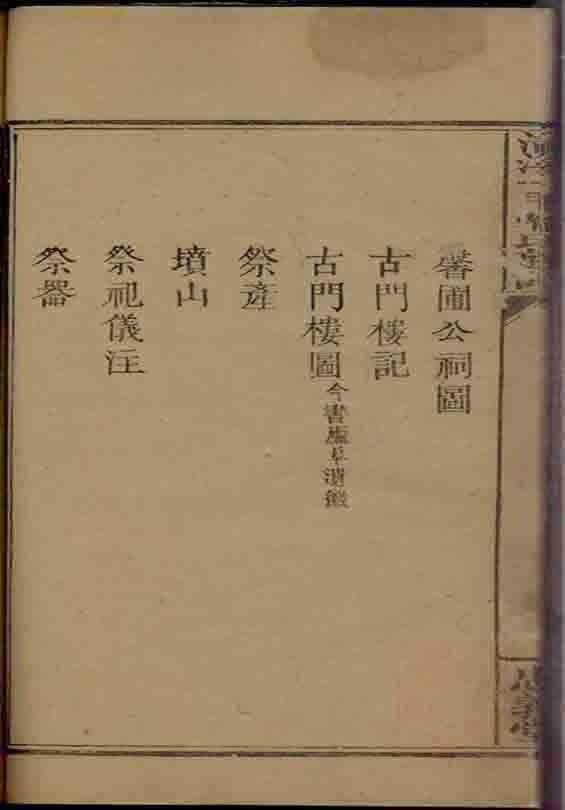 馨圃公祠圖
古門樓記
古門樓圖今書廡草遺徽
祭產
墳山
祭祀儀注
祭器